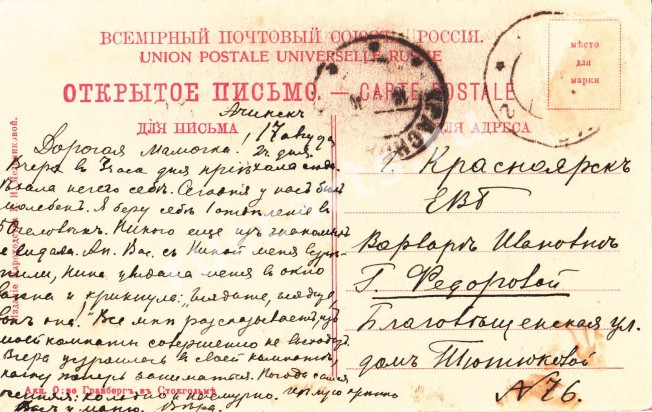 ВСЕМІРНЫЙ ПОЧТОВЫЙ СОЮЗЪ. РОССІЯ.
UNION POSTALE UNIVERSELLE. RUSSIE
ОТКРЫТОЕ ПИСЬМО. — CARTE POSTALE
мѣсто
для
марки
ДЛЯ ПИСЬМА
ДЛЯ АДРЕСА
Ачинскъ
17 августа
2 ч. дня.
Дорогая Мамочка.
Вчера въ 2 часа дня пріѣхала сюда.
Ѣхала ничего себѣ. Сегодня у насъ былъ
молебенъ. Я беру себѣ 1 отдѣленіе въ
50 человѣкъ. Никого еще изъ знакомыхъ
не видала. Ан. Вас. съ Ниной меня
Нина увидала меня въ окно
и крикнула: "глядите, глядите
вонъ она." Все мнѣ разсказываетъ,
моей комнаты совершенно не
Вчера устроилась въ своей комнатѣ,
теперь заниматься. Погода
холодно и пасмурно. цѣлую крѣпко
Г. Красноярскъ
ЕВБ
Варварѣ Ивановнѣ
Г. Федоровой
Благовѣщенская ул.
домъ Тютюковой
№ 76.
КРАСНО
Акц. О-во Гранбергъ въ Стокгольмѣ